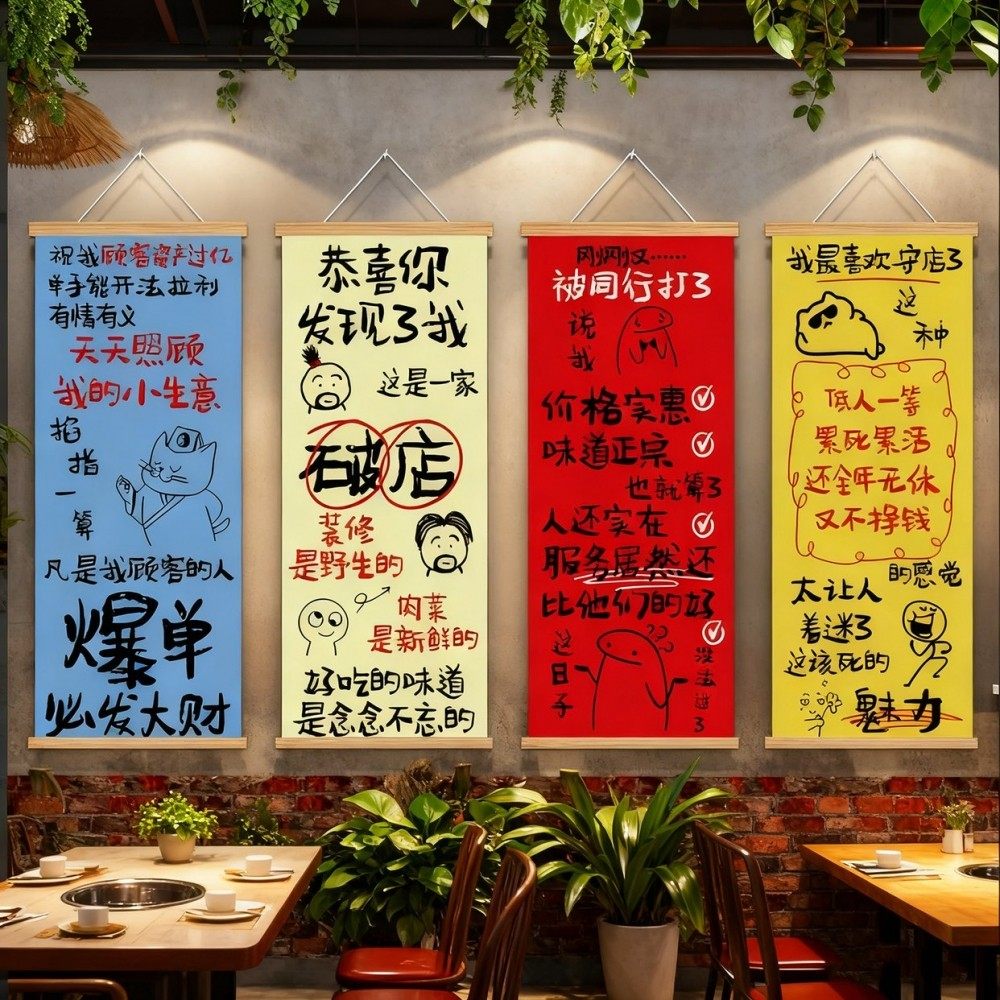 祝我顾客资产过亿
单手能开法拉利
有情有义
天天照顾
我的小生意
掐
指
一
算
凡是我顾客的人
爆单
必发大财
恭喜你
发现了我
这是一家
破店
装修
是野生的
肉菜
是新鲜的
好吃的味道
是念念不忘的
刚刚又······
被同行打了
说
我
价格实惠
味道正宗
也就算了
人还实在
服务居然还
比他们的好
这
日
子
没
法
过
了
我最喜欢守店了
这
种
低人一等
累死累活
还全年无休
又不挣钱
的感觉
太让人
着迷了
这该死的
魅力